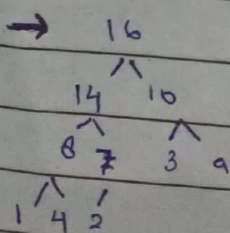 → 16
14 10
8 7 3 9
1 4 2